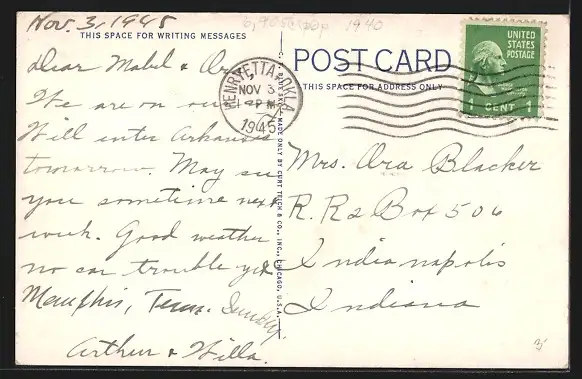 Nov. 3, 1945
THIS SPACE FOR WRITING MESSAGES
Dear Mabel & Ora
We are on our
Will enter Arkansas
tomarrow. May see
you sometime next
week. Good weather
no car trouble yet
Memphis, Tenn. Sunday.
Arthur & Willa.
HENRYETTA, OKLA
NOV 3
PM
1945
MADE ONLY BY CURT TEICH & CO., INC., CHICAGO, U.S.A.
POST CARD
THIS SPACE FOR ADDRESS ONLY
UNITED
STATES
POSTAGE
1 CENT 1
Mrs. Ora Blacker
R. R 2 Box 506
Indianapolis
Indiana
1940